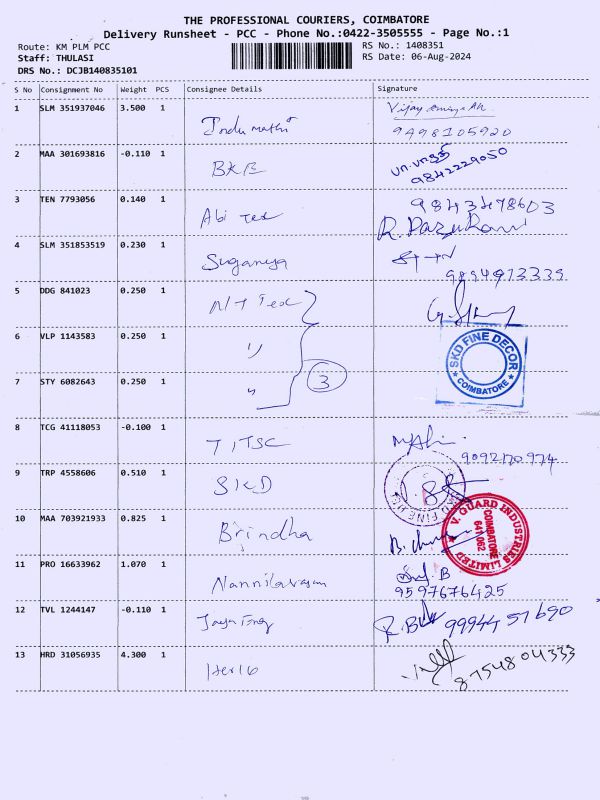 THE PROFESSIONAL COURIERS, COIMBATORE
Delivery Runsheet - PCC - Phone No.:0422-3505555 - Page No.:1
Route: KM PLM PCC
RS No.: 1408351
Staff: THULASI
RS Date: 06-Aug-2024
DRS No.: DCJB140835101
S No Consignment No Weight PCS Consignee Details Signature
1 SLM 351937046 3.500 1
Indumathi
9498105920
2 MAA 301693816 -0.110 1
BKB
9842229050
3 TEN 7793056 0.140 1
Abi Tex
9843478603
4 SLM 351853519 0.230 1
Suganya
9894973339
5 DDG 841023 0.250 1
NIT Tex
6 VLP 1143583 0.250 1
"
SKD FINE DECOR
COIMBATORE
7 STY 6082643 0.250 1
"
3
8 TCG 41118053 -0.100 1
TITSC
9092170974
9 TRP 4558606 0.510 1
SKD
SKD FINE
10 MAA 703921933 0.825 1
Brindha
V. GUARD INDUSTRIES LIMITED
COIMBATORE
641 062
11 PRO 16633962 1.070 1
Nannilavasam
B
9597676425
12 TVL 1244147 -0.110 1
Jaya Engg
9994457690
13 HRD 31056935 4.300 1
8754804333